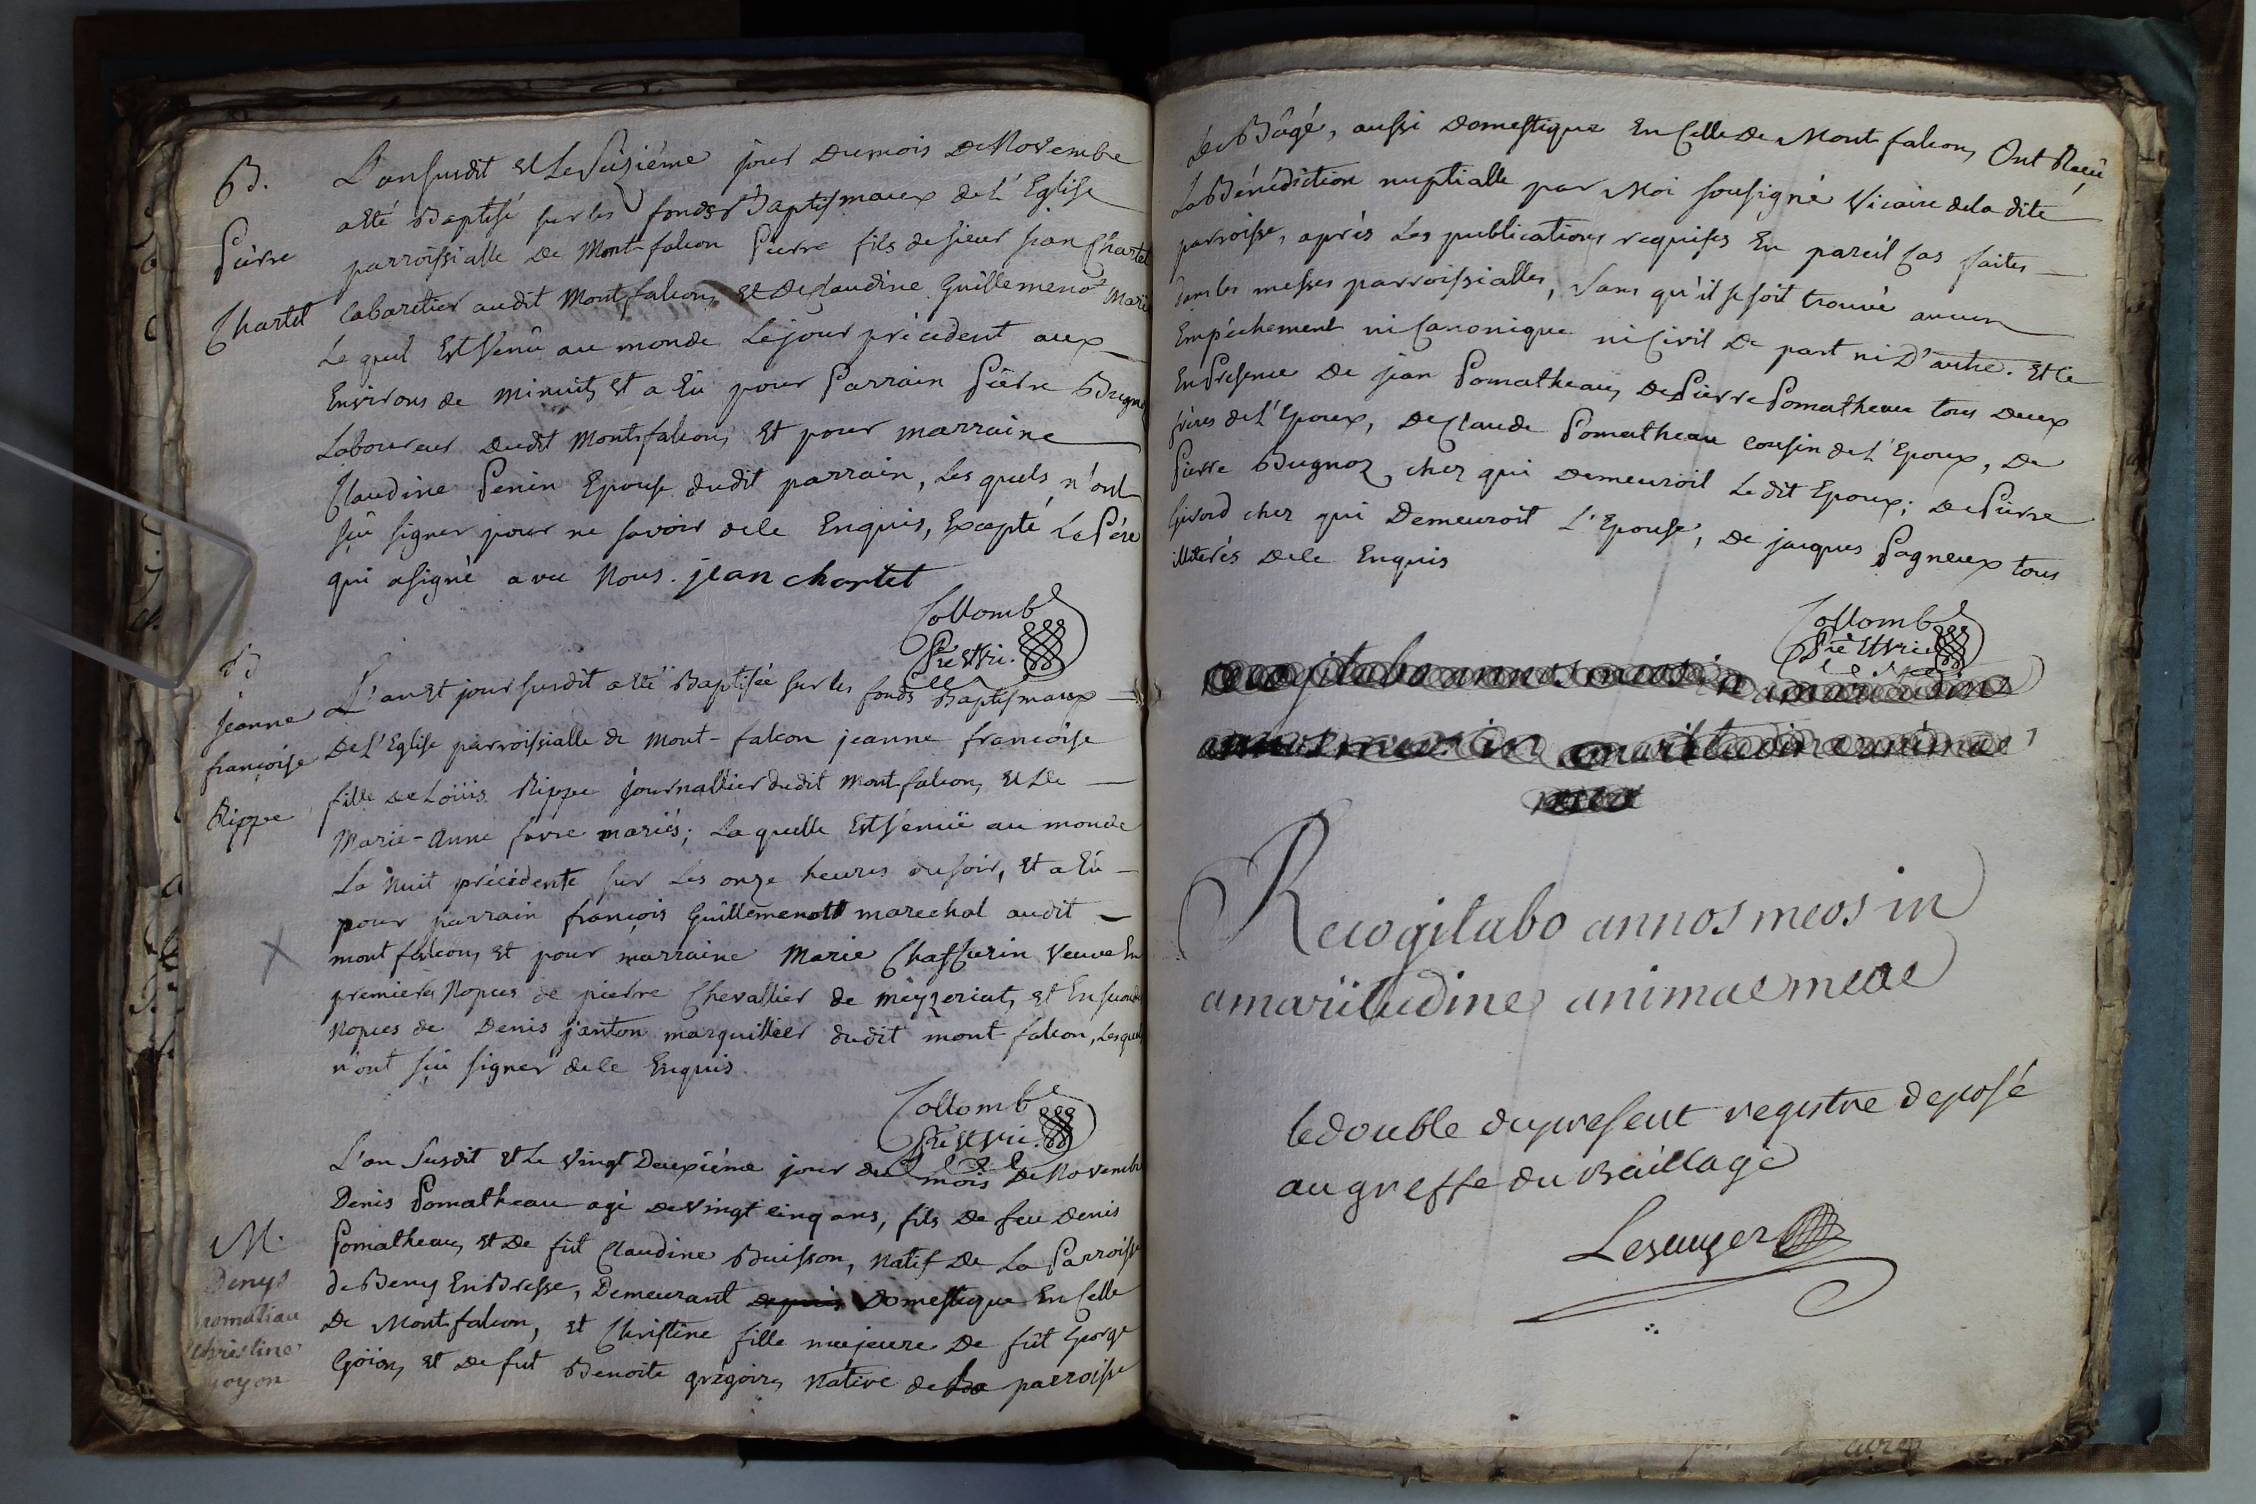 B.
Pierre
Chartet
L'an susdit et Le seizième jour du mois de Novembre
a été Baptisé sur les fonds Baptismaux de L'Eglise
parroissialle de Montfalcon Pierre fils de sieur jean Chartet
Cabaretier audit Montfalcon, et de Claudine Guillemenot Mariés
Le quel Est Venû au monde Le jour précedent aux
Environs de minuit, et a Eû pour Parrain Pierre Bugnoz
Laboureur dudit Montfalcon, et pour marraine
Claudine Penin Epouse dudit parrain, Les quels n'ont
sçû signer pour ne savoir de le Enquis, Excepté Le Pére
qui a signé avec Nous. jean chartet
Collomb
Pre et Vic.
B
jeanne
françoise
Rippe
L'an et jour susdit a été Baptisée sur les fonds Baptismaux
de L'Eglise parroissialle de Mont-falcon jeanne françoise
fille de Loüis Rippe journallier dudit Montfalcon, et de
Marie-Anne favre mariés; La quelle Est Venuë au monde
La Nuit précédente sur Les onze heures du soir, et a Eû
pour parrain françois Guillemenott marechal audit
montfalcon, et pour marraine Marie Chaffurin Veuve En
premières Nopces de pierre Chevallier de meyzeriat, et En seconde
Nopces de Denis janton marguillier dudit mont falcon, Lesquels
n'ont sçû signer de le Enquis
Collomb
Pre et Vic.
M.
Denys
pomatiau
Christine
goyon
L'an susdit et Le Vingt Deuxième jour du mois de Novembre
Denis Pomatheau agé de Vingt cinq ans, fils de feu Denis
Pomatheau, et de füt Claudine Buisson, Natif de La Parroisse
de Beny En Bresse, Demeurant depuis Domestique En Celle
de Montfalcon, et Christine fille majeure de füt George
Goïon, et de fut Benoite grégoire, Native de La parroisse
de Bâgé, aussi Domestique En Celle de Montfalcon, Ont Reçû
La Bénédiction nuptialle par Moi soussigné Vicaire de la dite
parroisse, après Les publications requises En pareil Cas faites
dans les messes parroissialles, sans qu'il se soit trouvé aucun
Empéchement ni Canonique ni Civil de part ni D'autre. Et Ce
En Presence de jean Pomatheau, de Pierre Pomatheau tous deux
frères de L'Epoux, de Claude Pomatheau cousin de L'Epoux, de
Pierre Bugnoz chez qui Demeuroit Le dit Epoux; de Pierre
Givord chez qui Demeuroit L'Epouse, de jacques Pagneux tous
illiterés de le Enquis
Collomb
Pre et Vic
recogitabo annos meos in amaritudine
annos meos in amaritudine animae
meae
Recogitabo annos meos in
amaritudine animae meae
le double du present registre deposé
au greffe du Baillage